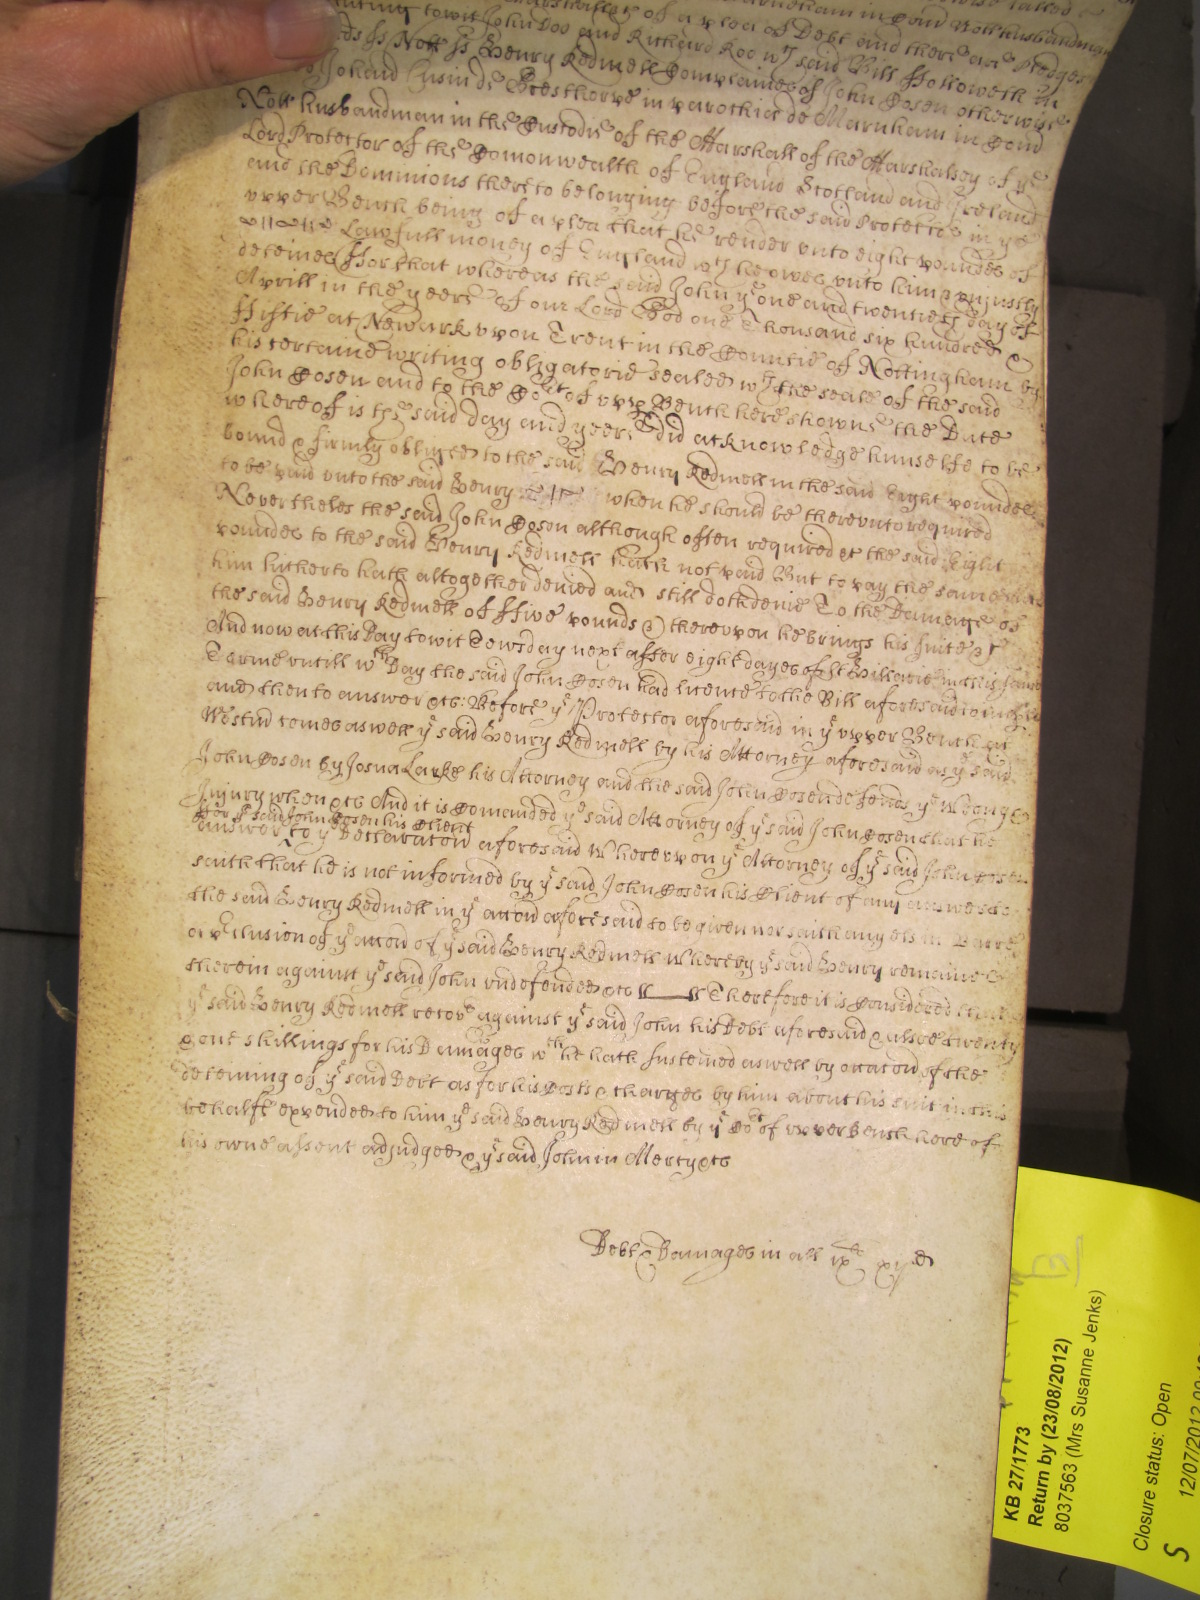 of a plea of Debt and there are Pledges
towit John Doo and Richard Roo wch said Bill Followeth in
Nott ss Henry Redmell Complaines of John Cosen otherwise
John Cusin de Gresthorpe in parochia de Marnham in Com
Nott husbandman in the Custodie of the Marshall of the Marshalsey of ye
Lord Protector of the Comonwealth of England Scotland and Ireland
and the Dominions thereto belonging before the said Protector in ye
upper Bench being of a plea that he render unto eight poundes of
Lawfull money of England wch he owes unto him & unjustly
deteines For that whereas the said John ye one and twentieth day of
Aprill in the yeere of our Lord God one Thousand six hundred &
Fiftie at Newark upon Trent in the Countie of Nottingham by
his certaine writing obligatorie sealed wth the seale of the said
John Cosen and to the Cort of upp Bench here showne the Date
whereof is the said day and yeere did acknowledge himselfe to be
bound & firmly obliged to the said Henry Redmell in the said Eight poundes
to be paid unto the said Henry when he should be thereunto required
Nevertheles the said John Cosen although often required &c the said Eight
poundes to the said Henry Redmell hath not paid But to pay the same
him hitherto hath altogether denied and still doth denie To the Damage of
the said Henry Redmell of Five pounds & thereupon he brings his suite &c
And now at this Day towit Tewsday next after eight dayes of St Hillarie in this same
Terme untill wch Day the said John Cosen had licence to the Bill aforesaid to
and then to answer &c: Before ye Protector aforesaid in ye upper Bench at
Westm comes aswell ye said Henry Redmell by his Attorney aforesaid as ye said
John Cosen by Josua Larke his Attorney and the said John Cosen defends ye Wrong &
Injury when &c And it is Comanded ye said Attorney of ye said John Cosen that he
For ye said John Cosen his Client
answer to ye Declaracon aforesaid Whereupon ye Attorney of ye said John Cosen
saith that he is not informed by ye said John Cosen his Client of any answere to
the said Henry Redmell in ye accon aforesaid to be given nor saith any &c in Barre
or pclusion of ye accon of ye said Henry Redmell Whereby ye said Henry remaines
therein against ye said John undefended &c Therefore it is Considered that
ye said Henry Redmell recovr against ye said John his Debt aforesaid & alsoe twenty
& one shillings for his Damages wch he hath susteined aswell by occacon of the
deteining of ye said Debt as for his Costs & charges by him about his suit in this
behalfe expended to him ye said Henry Redmell by ye Cort of upper Bench here of
his owne assent adjudged & ye said John in Mercy &c
Debt & Damages in all ixl xijd
KB 27/1773
Return by (23/08/2012)
8037563 (Mrs Susanne Jenks)
Closure status: Open
S